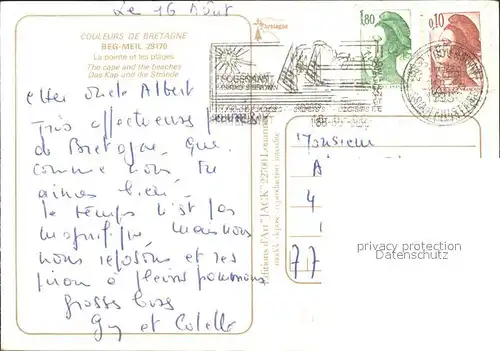 Le 16 Août
COULEURS DE BRETAGNE
BEG-MEIL 29170
La pointe et les plages
The cape and the beaches
Das Kap und die Strände
Cher oncle Albert
Très affectueuses
de Bretagne que
comme nous tu
aimes bien.
le temps n'est pas
magnifique mais nous
nous reposons et res
pirons à pleins poumons
grosses bises
Guy et Colette
bretagne
1,80
0,10
Editions d'Art "JACK"
modèle déposé reproduction interdite
Monsieur
A
4
77
privacy protection
Datenschutz